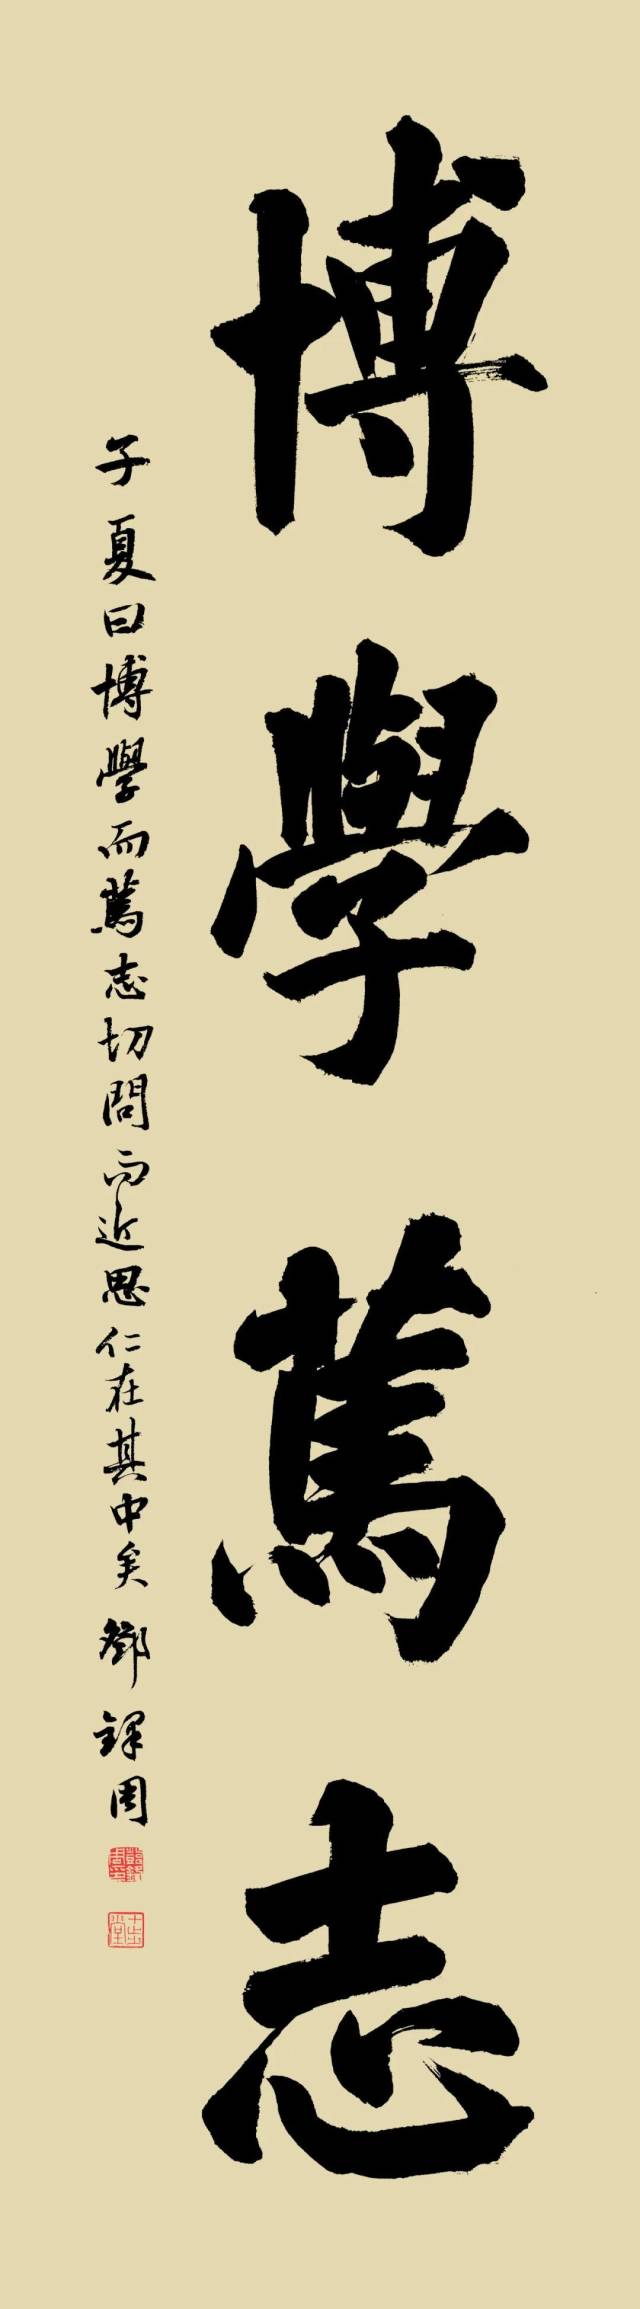 博學篤志
子夏曰博學而篤志切問而近思仁在其中矣 鄧鐸周
十步堂